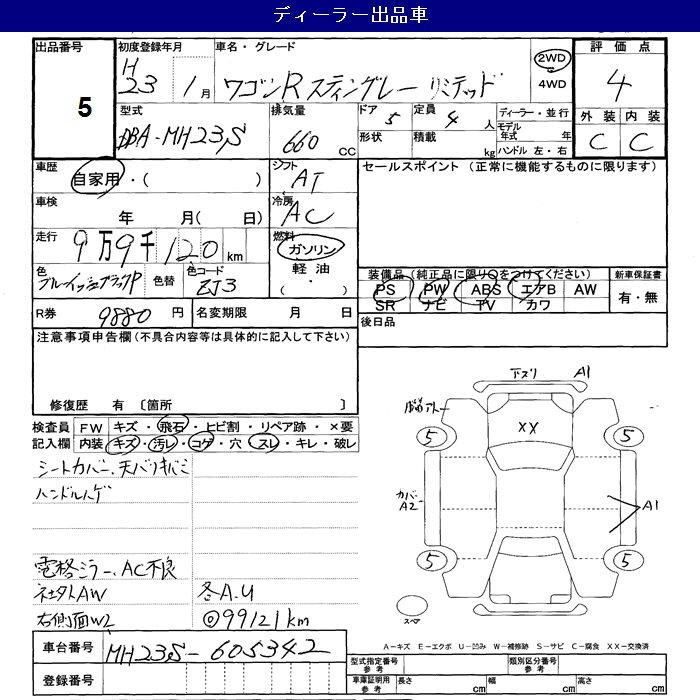 ディーラー出品車
出品番号 5
初度登録年月 H23 1月
車名・グレード ワゴンR スティングレー リミテッド
2WD
4WD
評価点 4
型式 DBA-MH23S
排気量 660 cc
ドア 5 定員 4 人
形状 積載 kg
ディーラー・並行
モデル年式 年
ハンドル 左・右
外装 内装
C C
車歴 自家用・( )
シフト AT
セールスポイント (正常に機能するものに限ります)
車検 年 月( 日)
冷房 AC
走行 9万9千120km
燃料 ガソリン
軽油
( ・ )
色 ブルーイッシュブラックP 色替 色コード ZJ3
装備品(純正品に限りOをつけてください) 新車保証書
PS PW ABS エアB AW
SR ナビ TV カワ
有・無
R券 9880円 名変期限 月 日
後日品
注意事項申告欄(不具合内容等は具体的に記入して下さい)
修復歴 有 〔箇所 〕
検査員 FW キズ・飛石・ヒビ割・リペア跡・×要
記入欄 内装 キズ・汚レ・コゲ・穴・スレ・キレ・破レ
シートカバー、天バリキバミ
ハンドルハゲ
電格ミラー、AC不良
社外AW 各A.U
右側面W2 ◎99121km
下スリ A1
XX
5 5
カバーA2
A1
5 5
スペア
A-キズ E-エクボ U-凹み W-補修跡 S-サビ C-腐食 XX-交換済
車台番号 MH23S-605342
登録番号
型式指定番号 参考 類別区分番号 参考
車庫証明用 参考 長さ cm 幅 cm 高さ cm